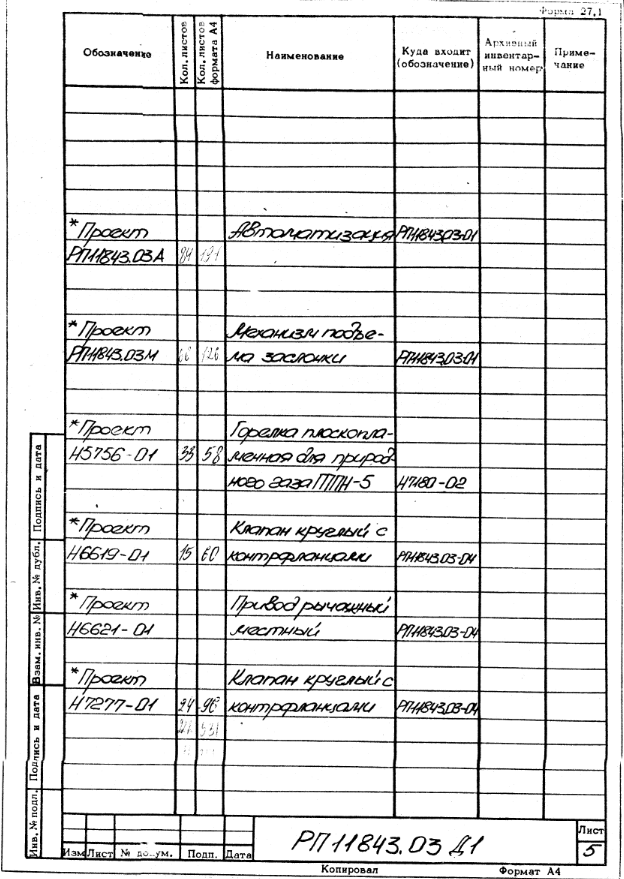 Форма 27,1
Обозначение Кол. листов Кол. листов формата А4 Наименование Куда входит (обозначение) Архивный инвентарный номер Примечание
*Проект Автоматизация РП11843.03-01
РП11843.03А
*Проект Механизм подъе-
РП11843.03М ма заслонки РП11843.03-01
*Проект Горелка плоскопла-
Н5756-01 33 58 менная для природ-
ного газа ГППН-5 Н7180-02
*Проект Клапан круглый с
Н6619-01 15 60 контрфланцами РП11843.03-04
*Проект Привод рычажный
Н6621-01 местный РП11843.03-04
*Проект Клапан круглый с
Н7277-01 24 96 контрфланцами РП11843.03-04
Подпись и дата
Инв. № дубл.
Взам. инв. №
Подпись и дата
Инв. № подл.
РП11843.03 Д1
Лист
5
Изм Лист № докум. Подп. Дата
Копировал Формат А4